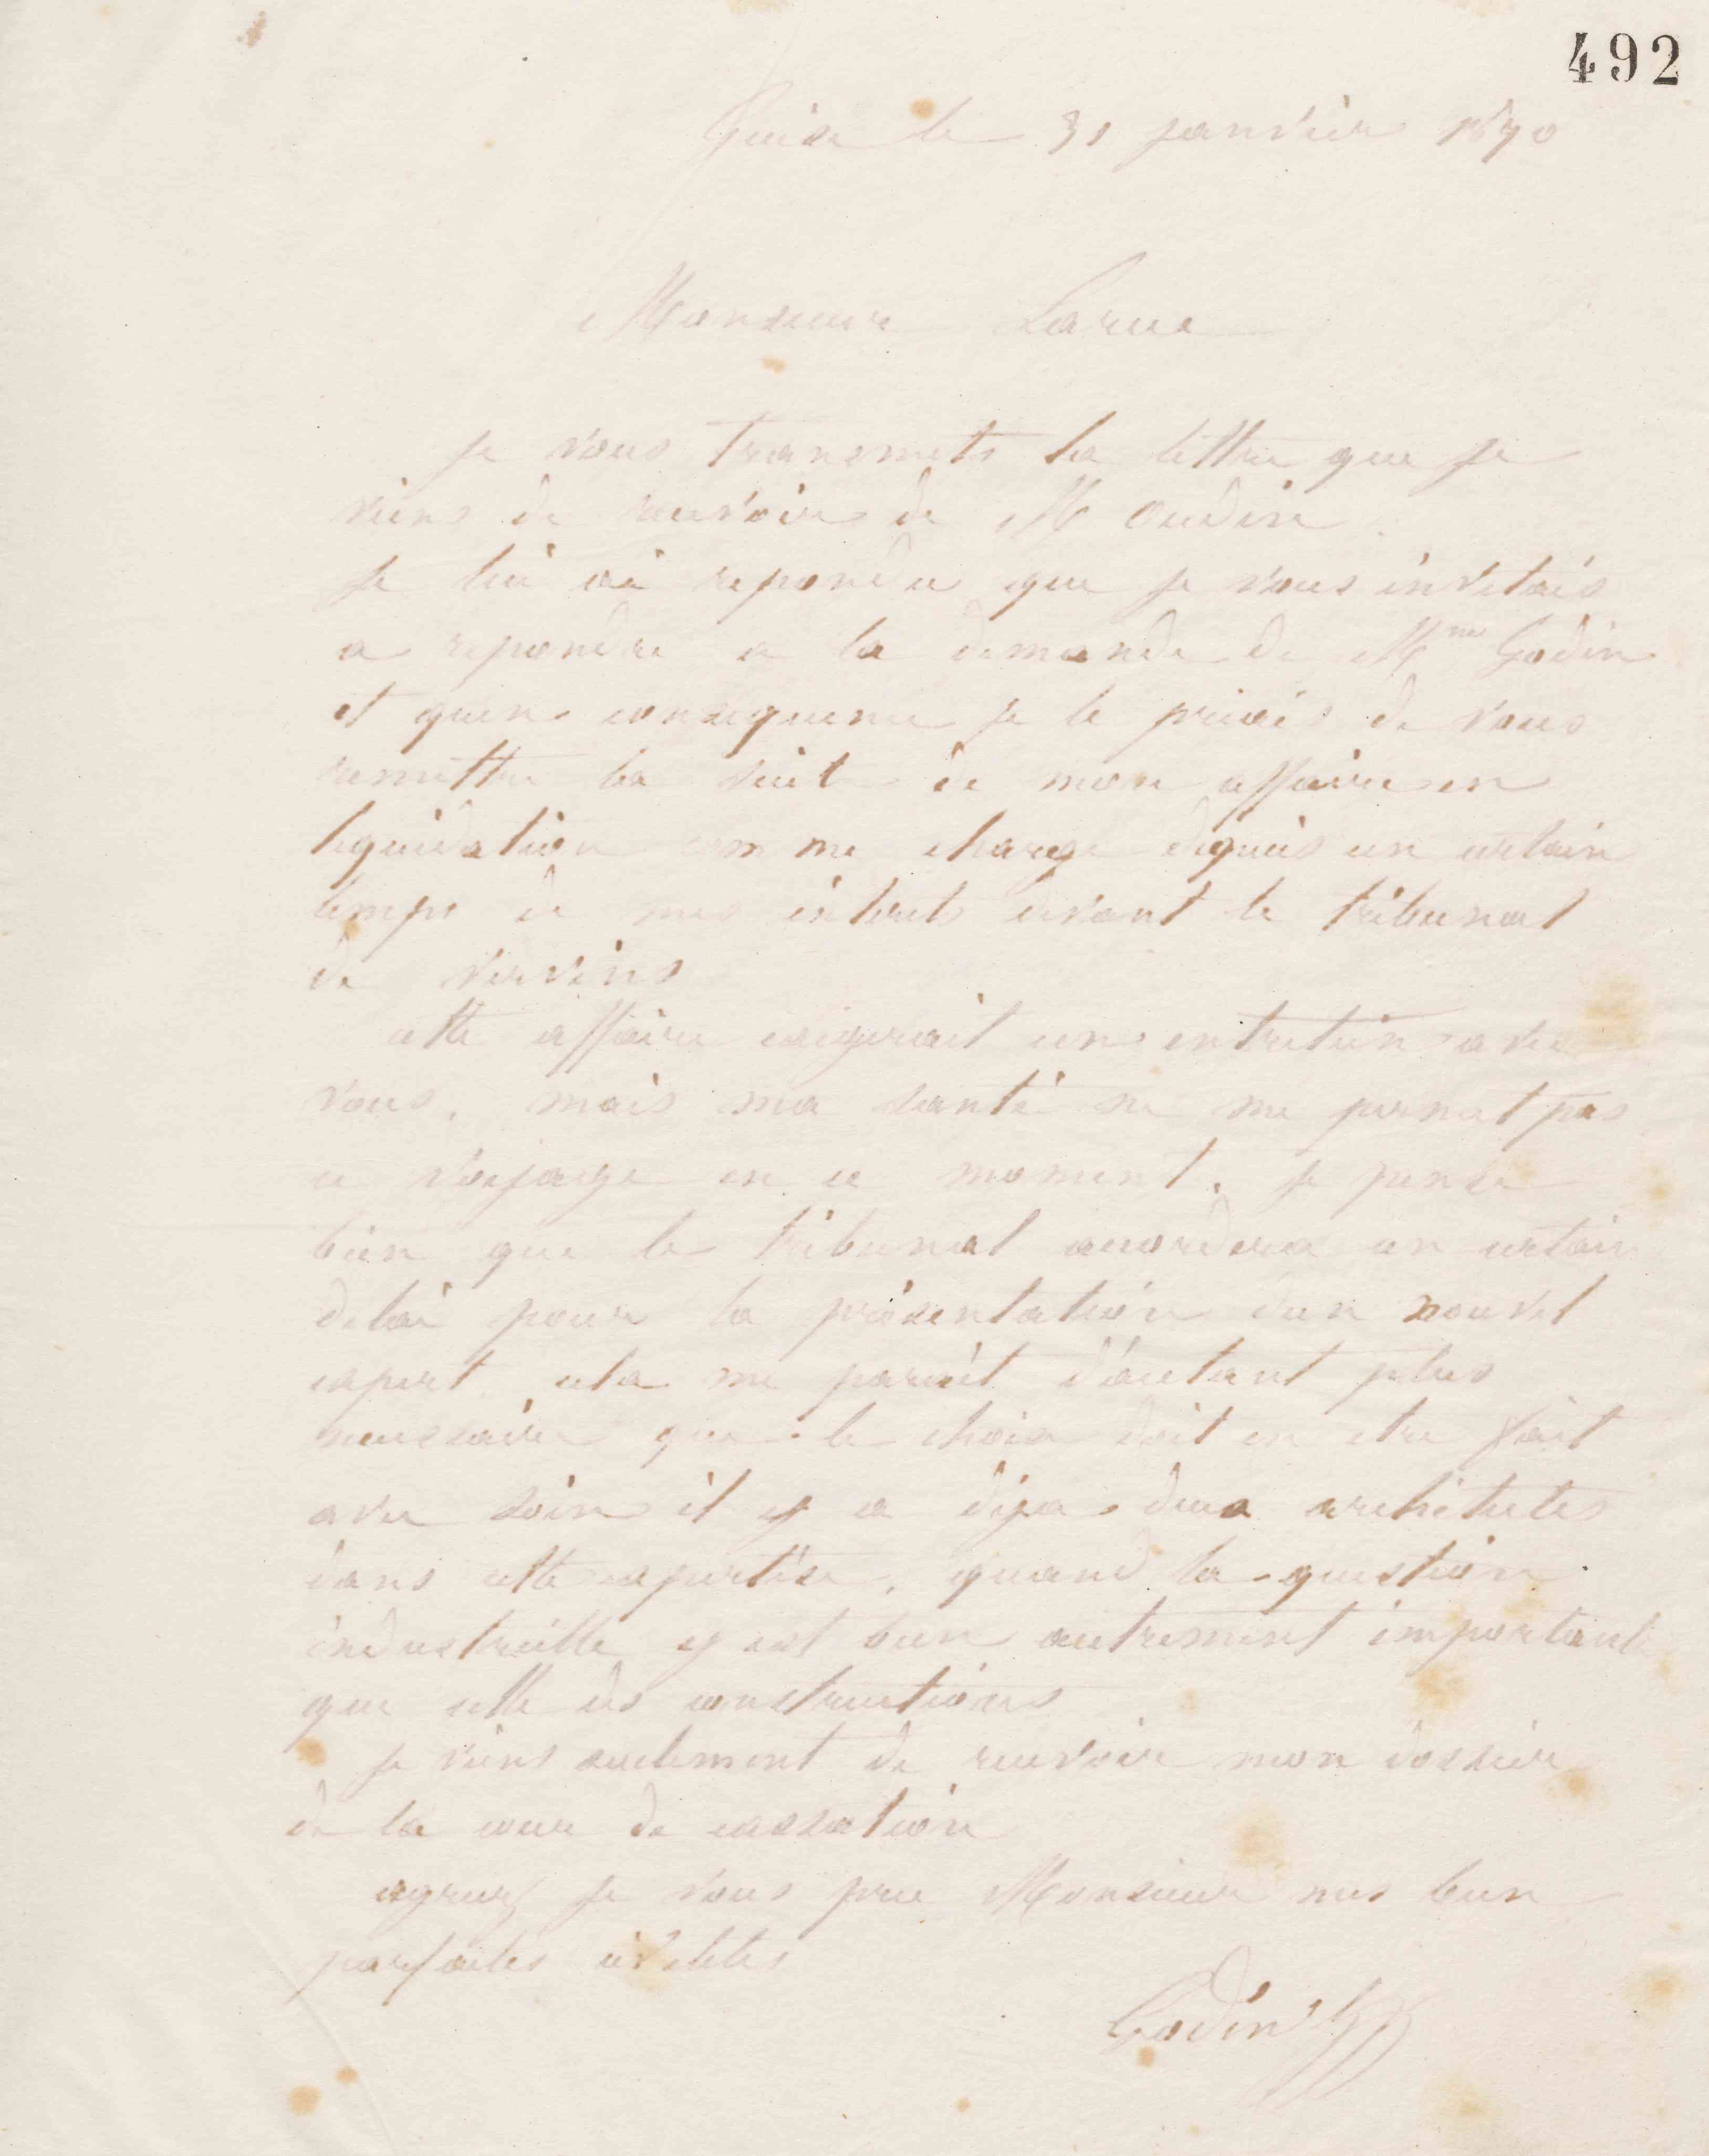 492
Guise le 31 janvier 1870
Monsieur Larue
Je vous transmets la lettre que je
viens de recevoir de M Oudin.
Je lui ai repondu que je vous invitais
a repondre a la demande de Mme Godin
et qu'en consequence je le priais de vous
remettre la suite de mon affaire en
liquidation comme charge depuis un certain
temps de mes intérets devant le tribunal
de vervins
cette affaire exigerait un entretien avec
vous, mais ma santé ne me permet pas
ce voyage en ce moment. je pense
bien que le tribunal accordera un certain
delai pour la présentation dun nouvel
expert cela me parait d'autant plus
necessaire que le choix doit en etre fait
avec soin il y a deja deux architectes
dans cette expertise, quand la question
industrielle y est bien autrement importante
que celle des constructions
Je viens seulement de recevoir mon dossier
de la cour de cassation
agreez je vous prie Monsieur mes bien
parfaites civilités
Godin